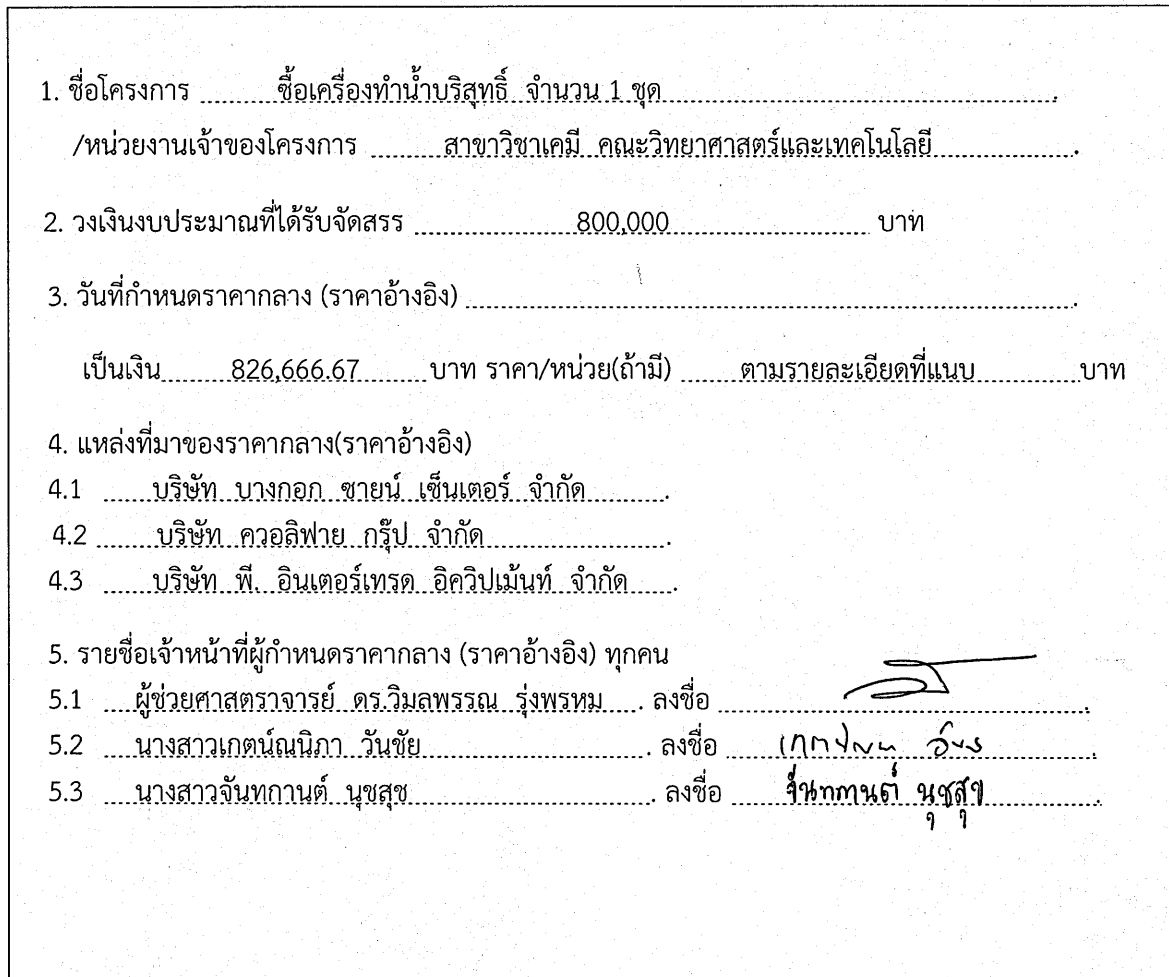 1. ชื่อโครงการ ซื้อเครื่องทำน้ำบริสุทธิ์ จำนวน 1 ชุด
/หน่วยงานเจ้าของโครงการ สาขาวิชาเคมี คณะวิทยาศาสตร์และเทคโนโลยี
2. วงเงินงบประมาณที่ได้รับจัดสรร 800,000 บาท
3. วันที่กำหนดราคากลาง (ราคาอ้างอิง)
เป็นเงิน 826,666.67 บาท ราคา/หน่วย(ถ้ามี) ตามรายละเอียดที่แนบ บาท
4. แหล่งที่มาของราคากลาง(ราคาอ้างอิง)
4.1 บริษัท บางกอก ซายน์ เซ็นเตอร์ จำกัด
4.2 บริษัท ควอลิฟาย กรุ๊ป จำกัด
4.3 บริษัท พี. อินเตอร์เทรด อิควิปเม้นท์ จำกัด
5. รายชื่อเจ้าหน้าที่ผู้กำหนดราคากลาง (ราคาอ้างอิง) ทุกคน
5.1 ผู้ช่วยศาสตราจารย์ ดร.วิมลพรรณ รุ่งพรหม ลงชื่อ
5.2 นางสาวเกตน์ณนิภา วันชัย ลงชื่อ
5.3 นางสาวจันทกานต์ นุชสุช ลงชื่อ จันทกานต์ นุชสุข